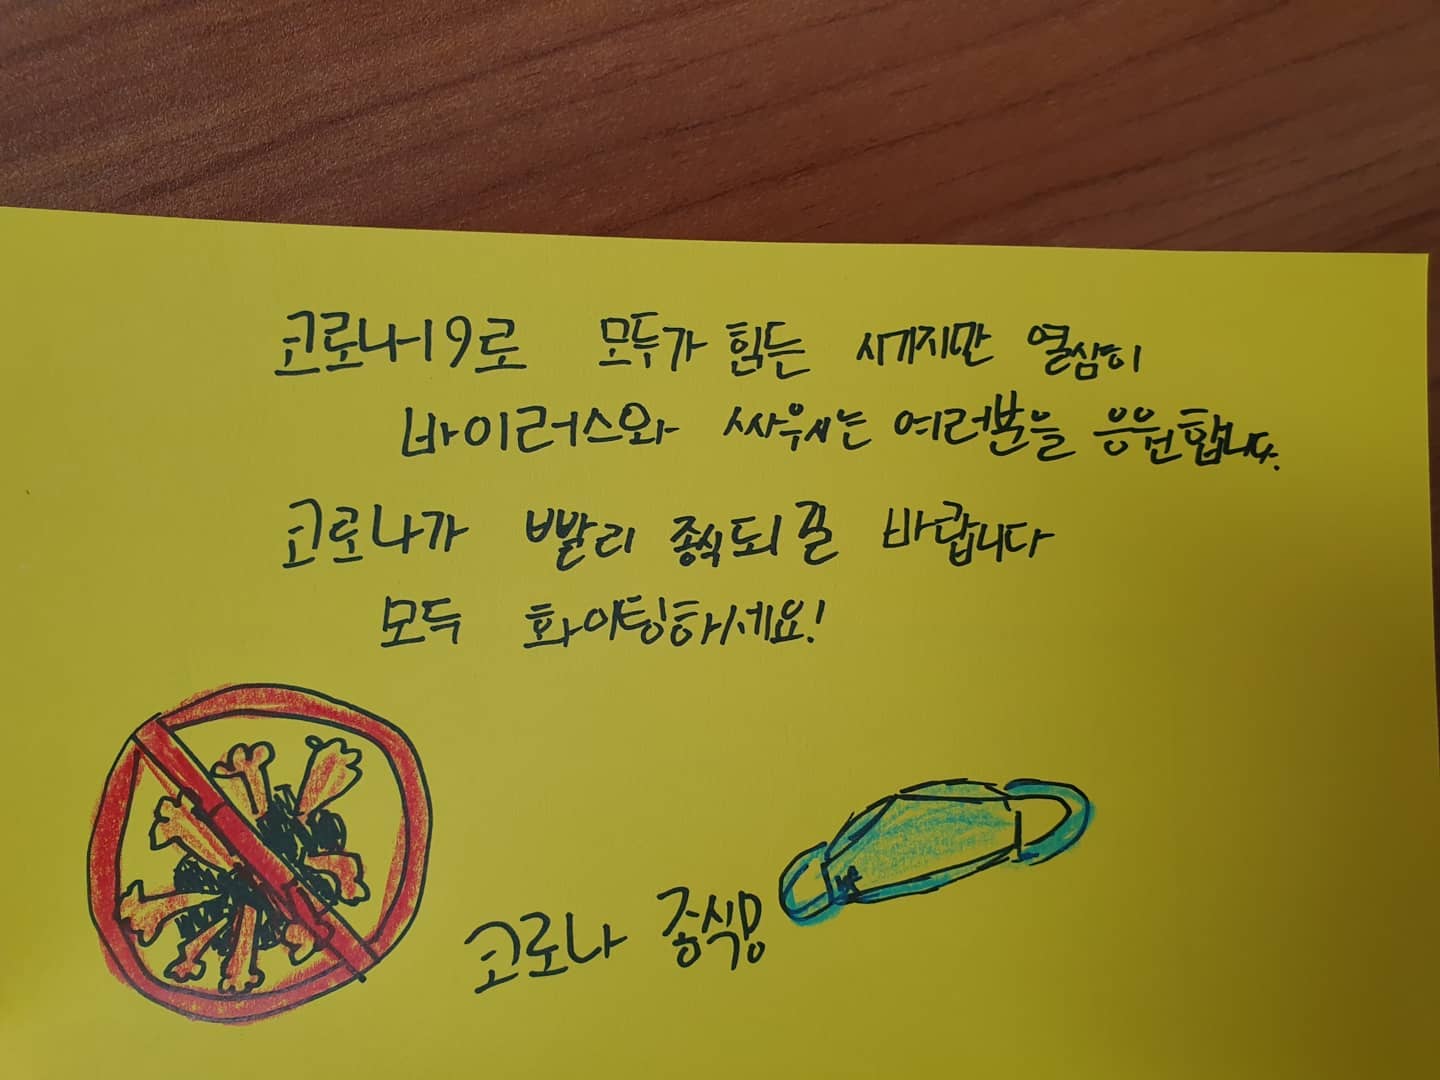 코로나19로 모두가 힘든 시기지만 열심히
바이러스와 싸우시는 여러분을 응원합니다.
코로나가 빨리 종식되길 바랍니다
모두 화이팅하세요!
코로나 종식